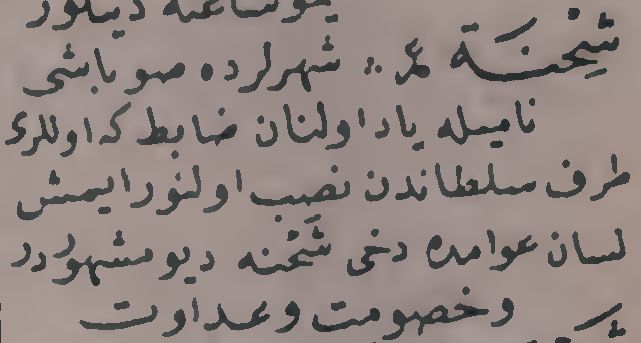 دینلور
شِحْنَة ع :: شهرلرده صوباشى
نامیله یاد اولنان ضابط که اوللرى
طرف سلطاندن نصب اولنور ایمش
لسان عوامده دخى شَحْنه دیو مشهوردر
وخصومت وعداوت